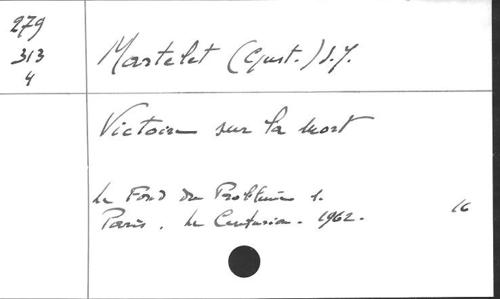 279
313
4
Martelet (Gust.) S.J.
Victoire sur la mort
Le Fond du Problème 1.
Paris. Le Centurion - 1962.
16